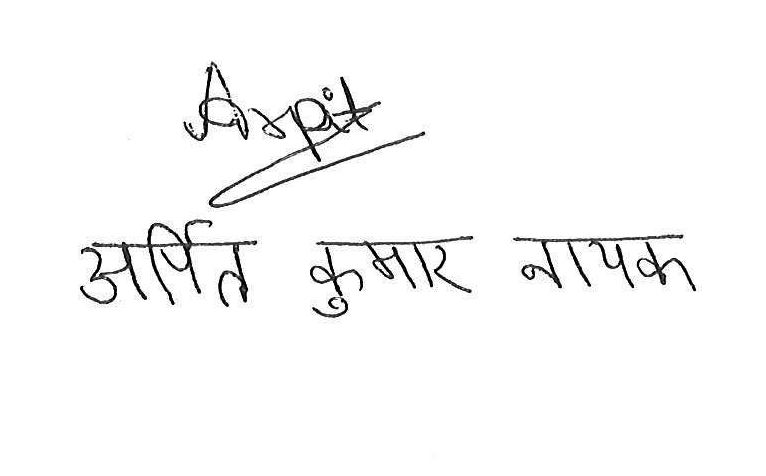 Arpit
अर्पित कुमार नायक